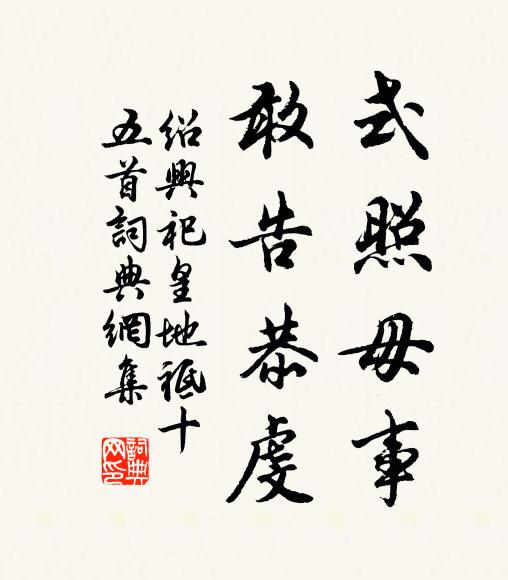 式照毋事
敢告恭虔
紹興祀皇地祇十
五首詞典網集
詞典
网印